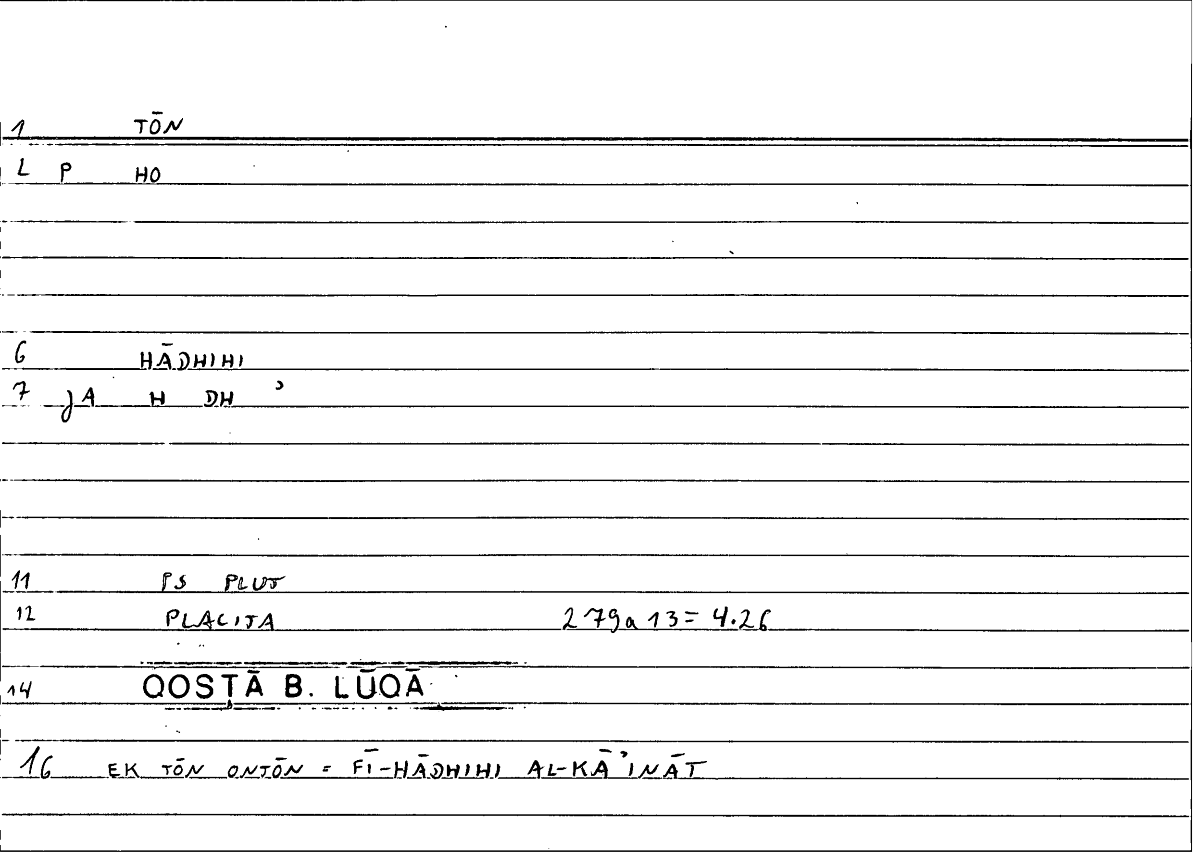 1 TŌN
L P HO
6 HĀDHIHI
7 JA H DH ʾ
11 PS PLUT
12 PLACITA 279a13=4.26
14 QOSṬĀ B. LŪQĀ
16 EK TŌN ONTŌN = FĪ-HĀDHIHI AL-KĀʾINĀT